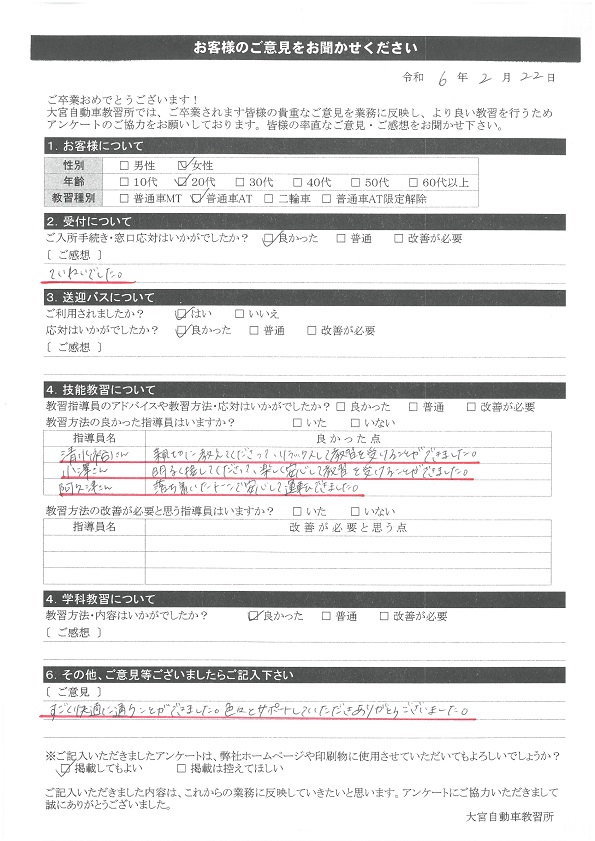 お客様のご意見をお聞かせください
令和 6 年 2 月 22 日
ご卒業おめでとうございます！
大宮自動車教習所では、ご卒業されます皆様の貴重なご意見を業務に反映し、より良い教習を行うため
アンケートのご協力をお願いしております。皆様の率直なご意見・ご感想をお聞かせ下さい。
1. お客様について
性別 □ 男性 ☑ 女性
年齢 □ 10代 ☑ 20代 □ 30代 □ 40代 □ 50代 □ 60代以上
教習種別 □ 普通車MT ☑ 普通車AT □ 二輪車 □ 普通車AT限定解除
2. 受付について
ご入所手続き・窓口応対はいかがでしたか？ ☑ 良かった □ 普通 □ 改善が必要
［ ご感想 ］
ていねいでした。
3. 送迎バスについて
ご利用されましたか？ ☑ はい □ いいえ
応対はいかがでしたか？ ☑ 良かった □ 普通 □ 改善が必要
［ ご感想 ］
4. 技能教習について
教習指導員のアドバイスや教習方法・応対はいかがでしたか？ □ 良かった □ 普通 □ 改善が必要
教習方法の良かった指導員はいますか？ □ いた □ いない
指導員名 良かった点
清水(裕)さん 親切に教えてくださって、リラックスして教習を受けることができました。
小澤さん 明るく接してくださって、楽しく安心して教習を受けることができました。
阿久津さん 落ち着いたトーンで安心して運転できました。
教習方法の改善が必要と思う指導員はいますか？ □ いた □ いない
指導員名 改善が必要と思う点
4. 学科教習について
教習方法・内容はいかがでしたか？ ☑ 良かった □ 普通 □ 改善が必要
［ ご感想 ］
6. その他、ご意見等ございましたらご記入下さい
［ ご意見 ］
すごく快適に通うことができました。色々とサポートしていただきありがとうございました。
※ご記入いただきましたアンケートは、弊社ホームページや印刷物に使用させていただいてもよろしいでしょうか？
☑ 掲載してもよい □ 掲載は控えてほしい
ご記入いただきました内容は、これからの業務に反映していきたいと思います。アンケートにご協力いただきまして
誠にありがとうございました。
大宮自動車教習所